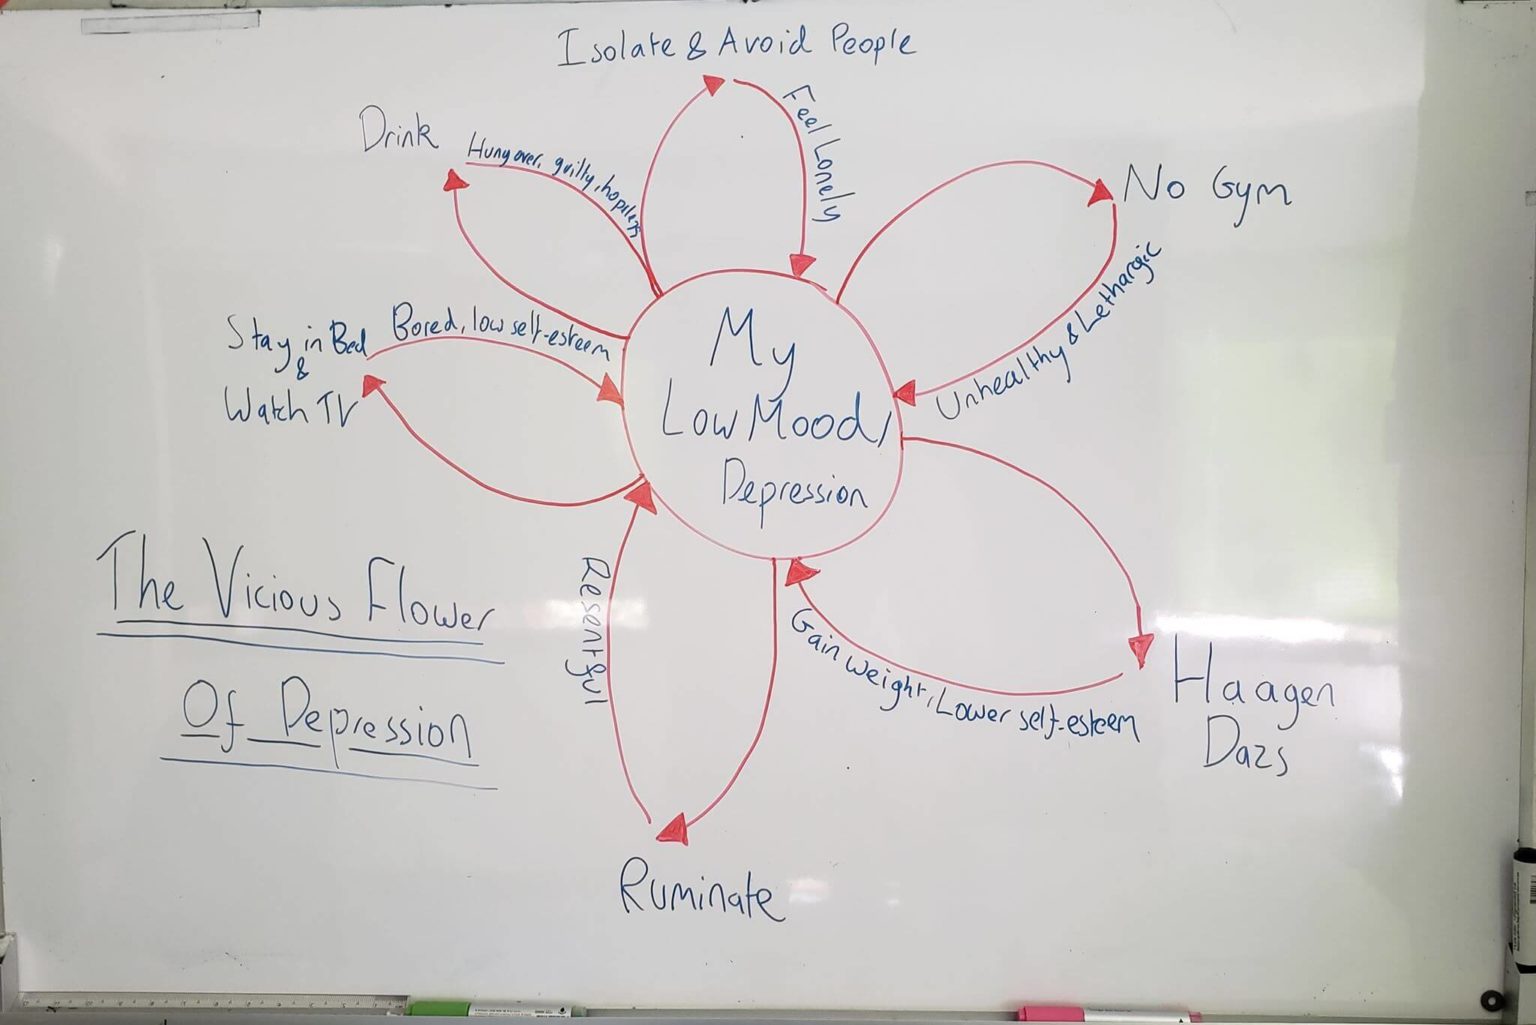 Isolate & Avoid People
Feel Lonely
Drink
Hungover, guilty, hopless
No Gym
Unhealthy & Lethargic
Stay in Bed
&
Watch TV
Bored, low self-esteem
My
Low Mood/
Depression
The Vicious Flower
Of Depression
Resentful
Gain weight, Lower self-esteem
Haagen
Dazs
Ruminate